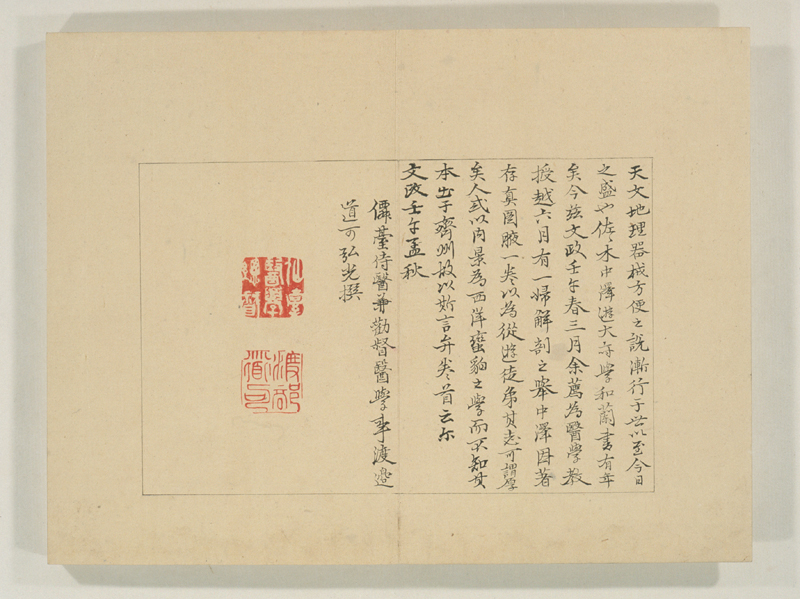 天文地理器械方便之説漸行于世以至今日
之盛也佐々木中澤遊大學和蘭書有年
矣今茲文政壬午春三月余薦為醫學教
授越六月有一婦解剖之舉中澤因著
存真圖腋一卷以為從遊徒弟其志可謂厚
矣人或以内景為西洋蠻貊之學而不知其
本出于齊州故以斯言弁卷首云尓
文政壬午孟秋
僊臺侍醫兼勸督醫學事渡邉
道可弘光撰
仙臺醫學督
渡部道可